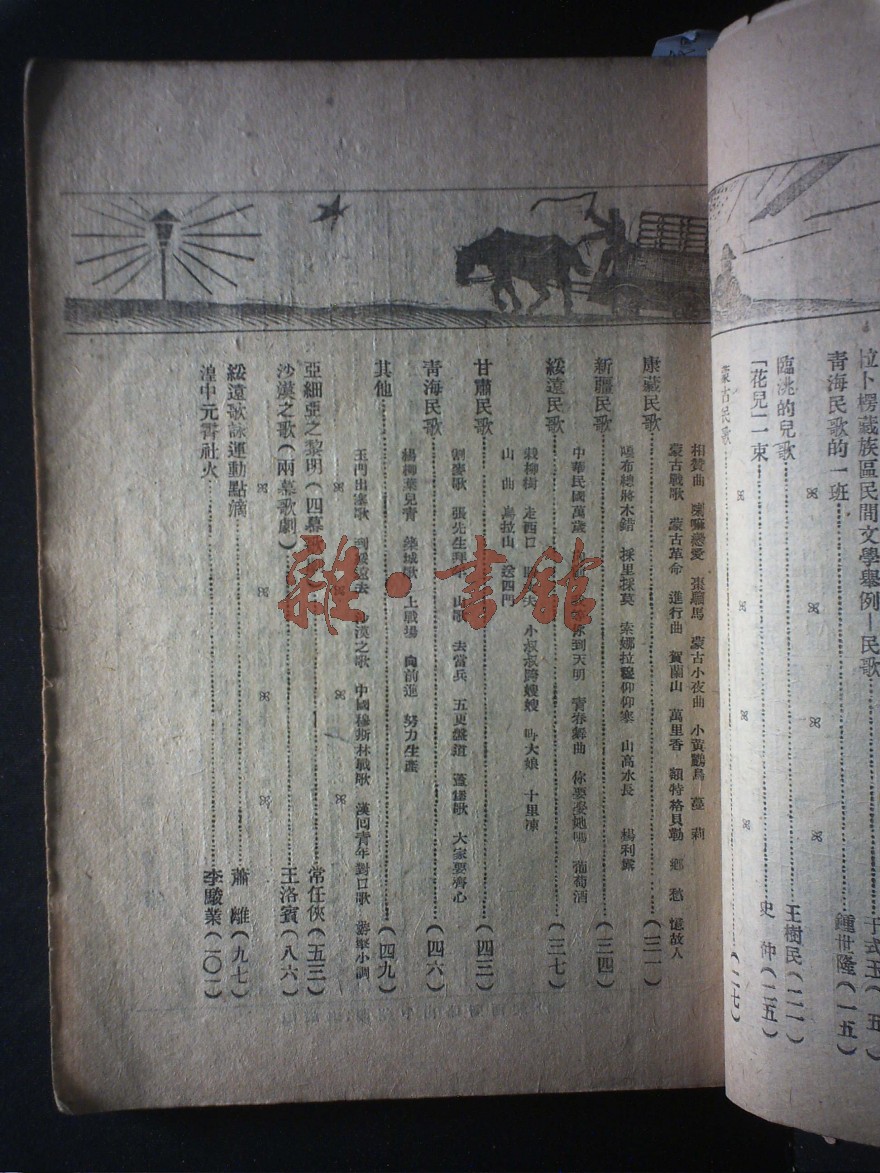 拉卜楞藏族區民間文學舉例—民歌 于式玉(五)
青海民歌的一班 鍾世隆(一五)
臨洮的兒歌 王樹民(二二)
「花兒」一束 史仲(二五)
蒙古民歌 (二七)
相贊曲 喇嘛戀愛 棗騮馬 蒙古小夜曲 小黃鸝鳥 莉
蒙古戰歌 蒙古革命 進行曲 賀蘭山 萬里香 額特格貝勒 鄉愁 憶故人
康藏民歌 (三一)
布總將木錯 採里採莫 索娜拉 仰仰塞 山高水長 楊利露
新疆民歌 (三四)
中華民國萬歲 你到天明 青春舞曲 你要 她嗎 葡萄酒
綏遠民歌 (三七)
栽柳樹 走西口 夫 小叔叔跨嫂嫂 大娘 十里凍
山曲 烏拉山 送四門
甘肅民歌 (四三)
割麥歌 張先生拜年 山歌 去當兵 五更盤道 歌 大家要齊心
青海民歌 (四六)
楊柳葉兒青 築城歌 上戰場 向前進 努力生產
其他 (四九)
玉門出塞歌 到綏遠去 沙漠之歌 中國穆斯林戰歌 漢回青年對口歌 游擊小調
亞細亞之黎明(四幕歌 常任俠(五三)
沙漠之歌(兩幕歌劇) 王洛賓(八六)
綏遠歌詠運動點滴 蕭離(九七)
湟中元宵社火 李駿業(一〇一)
雜·書館